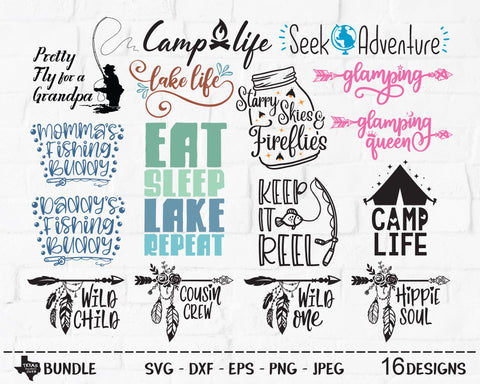 Pretty
Fly for a
Grandpa
Camp life
Seek Adventure
lake life
Starry
Skies &
Fireflies
glamping
glamping
queen
Momma's
Fishing
Buddy
EAT
SLEEP
LAKE
REPEAT
Daddy's
Fishing
Buddy
KEEP
IT
REEL
CAMP
LIFE
WILD
CHILD
COUSIN
CREW
WILD
ONE
HiPPiE
SOUL
BUNDLE
SVG - DXF - EPS - PNG - JPEG
16 DESIGNS